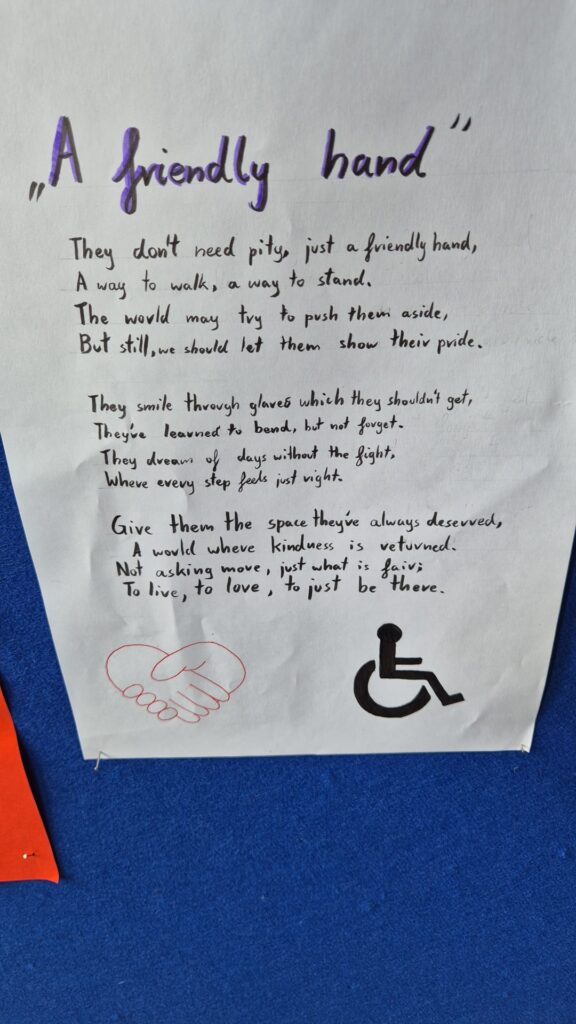 „A friendly hand”
They don't need pity, just a friendly hand,
A way to walk, a way to stand.
The world may try to push them aside,
But still, we should let them show their pride.
They smile through glares which they shouldn't get,
They've learned to bend, but not forget.
They dream of days without the fight,
Where every step feels just right.
Give them the space they've always deserved,
A world where kindness is returned.
Not asking more, just what is fair;
To live, to love, to just be there.